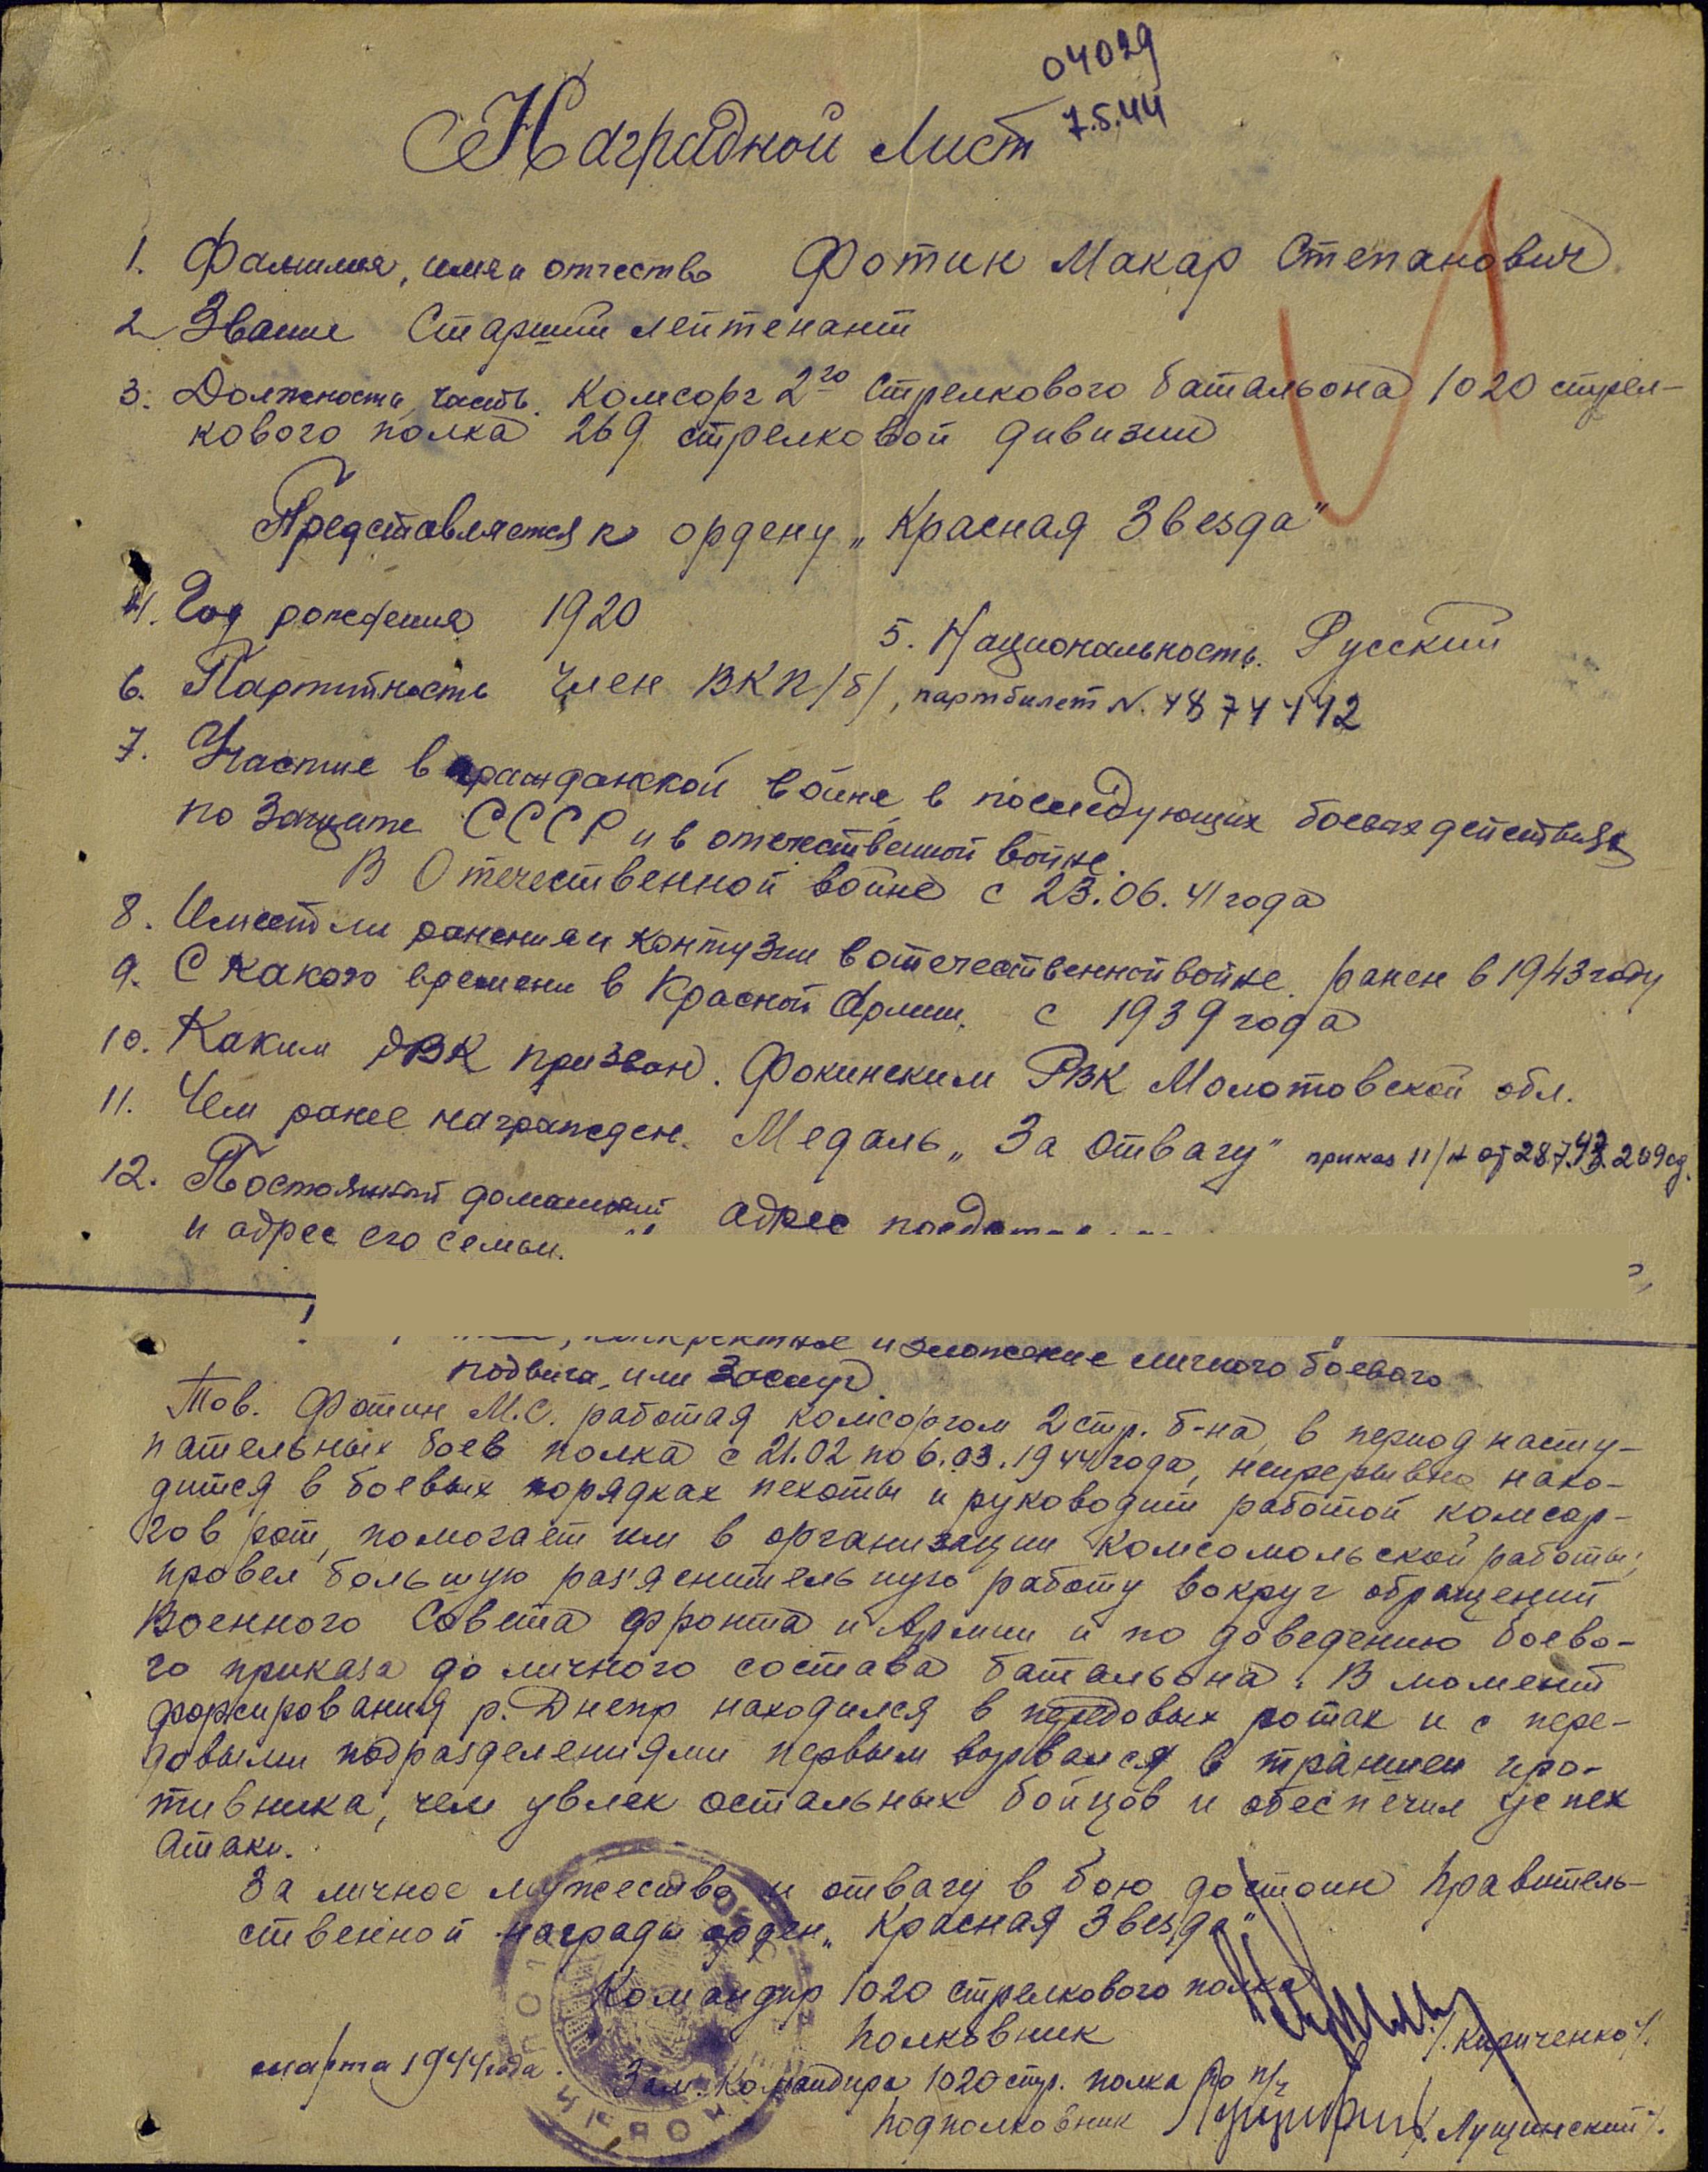 04029
7.5.44
Наградной лист
1. Фамилия, имя и отчество Фотин Макар Степанович
2. Звание Старший лейтенант
3. Должность, часть. Комсорг 2го стрелкового батальона 1020 стрел-
кового полка 269 стрелковой дивизии
Представляется к ордену „Красная Звезда"
4. Год рождения 1920
5. Национальность. Русский
6. Партийность Член ВКП/б/, партбилет N.
7. Участие в гражданской войне, в последующих боевых действиях
по защите СССР и в отечественной войне.
В Отечественной войне с 23.06.41 года
8. Имеет ли ранения и контузии в отечественной войне. ранен в 1943 году
9. С какого времени в Красной Армии. с 1939 года
10. Каким РВК призван. Фокинским РВК Молотовской обл.
11. Чем ранее награжден. Медаль „За отвагу" приказ 11/н от 28.7.43. 269 сд.
12. Постоянный домашний адрес
и адрес его семьи.
изложение личного боевого
подвига, или заслуг.
Тов. Фотин М.С. работая комсоргом 2 стр. б-на, в период насту-
пательных боев полка с 21.02 по 6.03.1944 года, непрерывно нахо-
дится в боевых порядках пехоты и руководит работой комсор-
гов рот, помогает им в организации комсомольской работы,
провел большую раз'яснительную работу вокруг обращений
Военного Совета фронта и Армии и по доведению боево-
го приказа до личного состава батальона. В момент
форсирования р. Днепр находился в передовых ротах и с пере-
довыми подразделениями первым ворвался в траншеи про-
тивника, чем увлек остальных бойцов и обеспечил успех
атаки.
За личное мужество и отвагу в бою достоин Правитель-
ственной награды орден „Красная Звезда"
Командир 1020 стрелкового полка
полковник /Кириченко/.
марта 1944 года.
Зам. Командира 1020 стр. полка по п/ч
подполковник /Лущинский/.